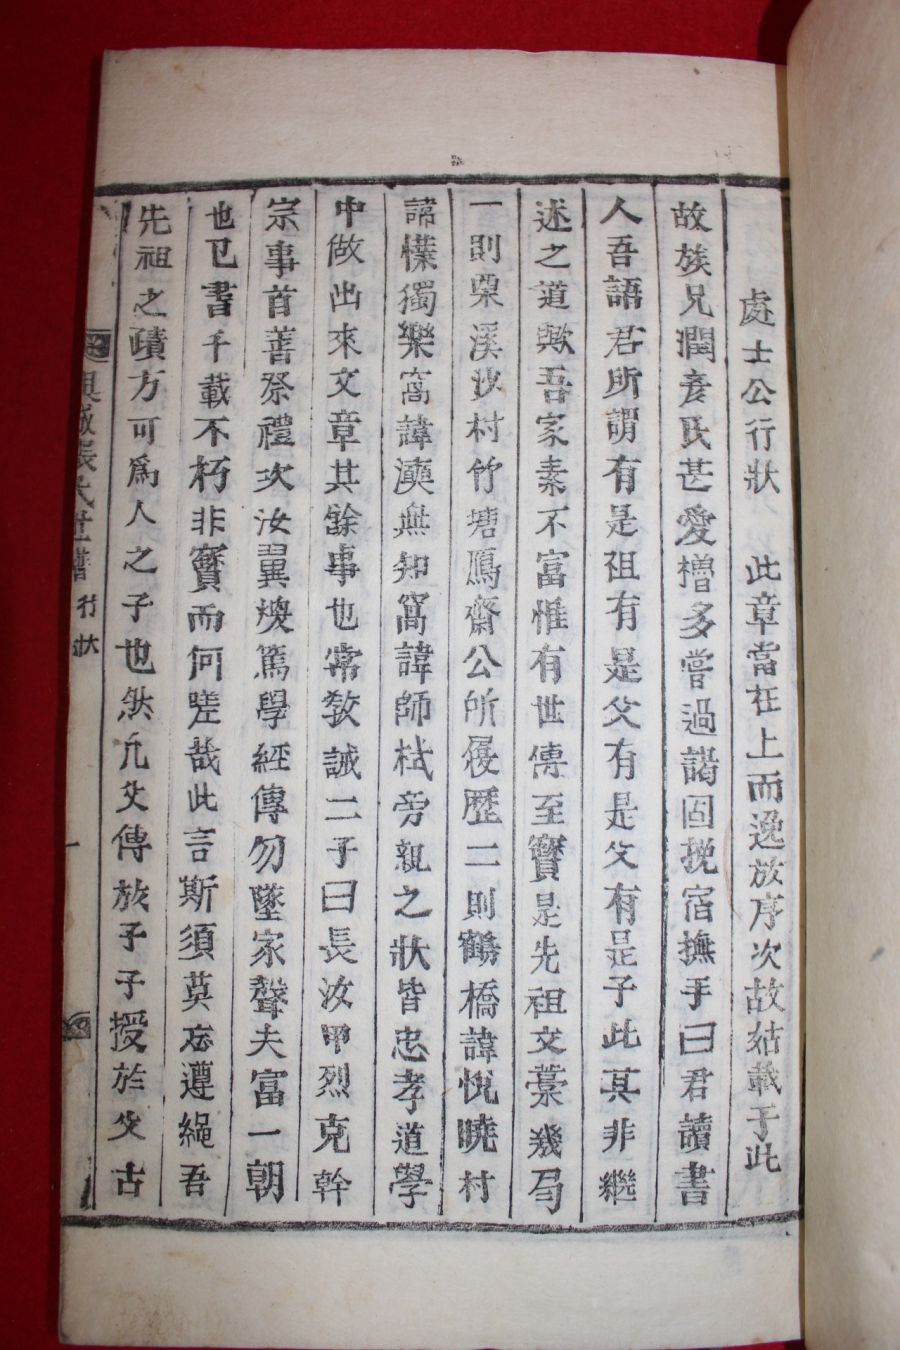 處士公行狀 此章當在上而逸於序次故姑載于此
故族兄潤彦氏甚愛憎多嘗過謁固挽宿撫手曰君讀書
人吾語君所謂有是祖有是父有是父有是子此其非繼
述之道歟吾家素不富惟有世傳至寶是先祖文藁幾局
一則栗溪沙村竹塘鴈齋公所優歷二則鶴橋諱悅曉村
諱㦿獨樂窩諱漢無知窩諱師栻旁親之狀皆忠孝道學
中做出來文章其餘事也常敎誡二子曰長汝甲烈克幹
宗事首善祭禮次汝翼煥篤學經傳勿墜家聲夫富一朝
也已書千載不朽非寶而何嗟哉此言斯須莫忘遵繩吾
先祖之蹟方可爲人之子也然凡父傳於子子授於父古
興城張氏世譜 行狀 一